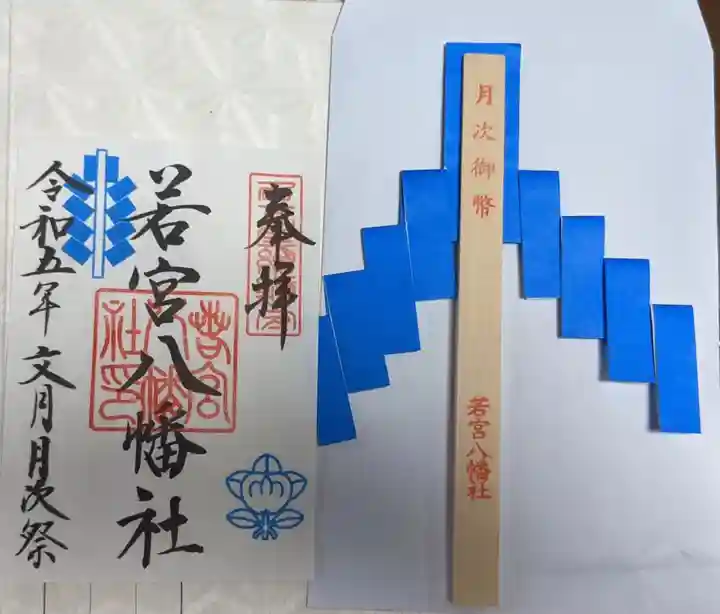 奉拝
若宮八幡社
若宮八幡社印
令和五年文月月次祭
月次御幣
若宮八幡社